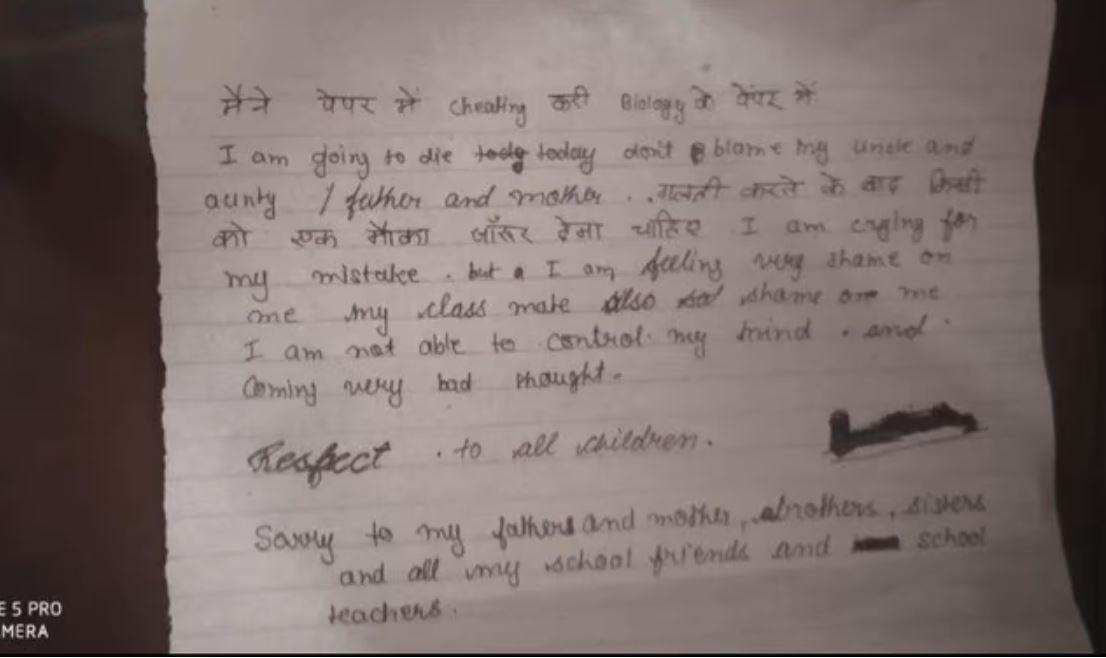 मैने पेपर में cheating करी Biology के पेपर में
I am going to die today don't blame my uncle and
aunty / father and mother . . गलती करने के बाद किसी
को एक मौका जॉरूर देना चाहिए I am crying for
my mistake . but I am feeling very shame on
me my class mate also shame on me
I am not able to control my mind . and .
Coming very bad thought.
Respect . to all children.
Sorry to my fathers and mother, brothers, sisters
and all my school friends and school
teachers.
E 5 PRO
MERA